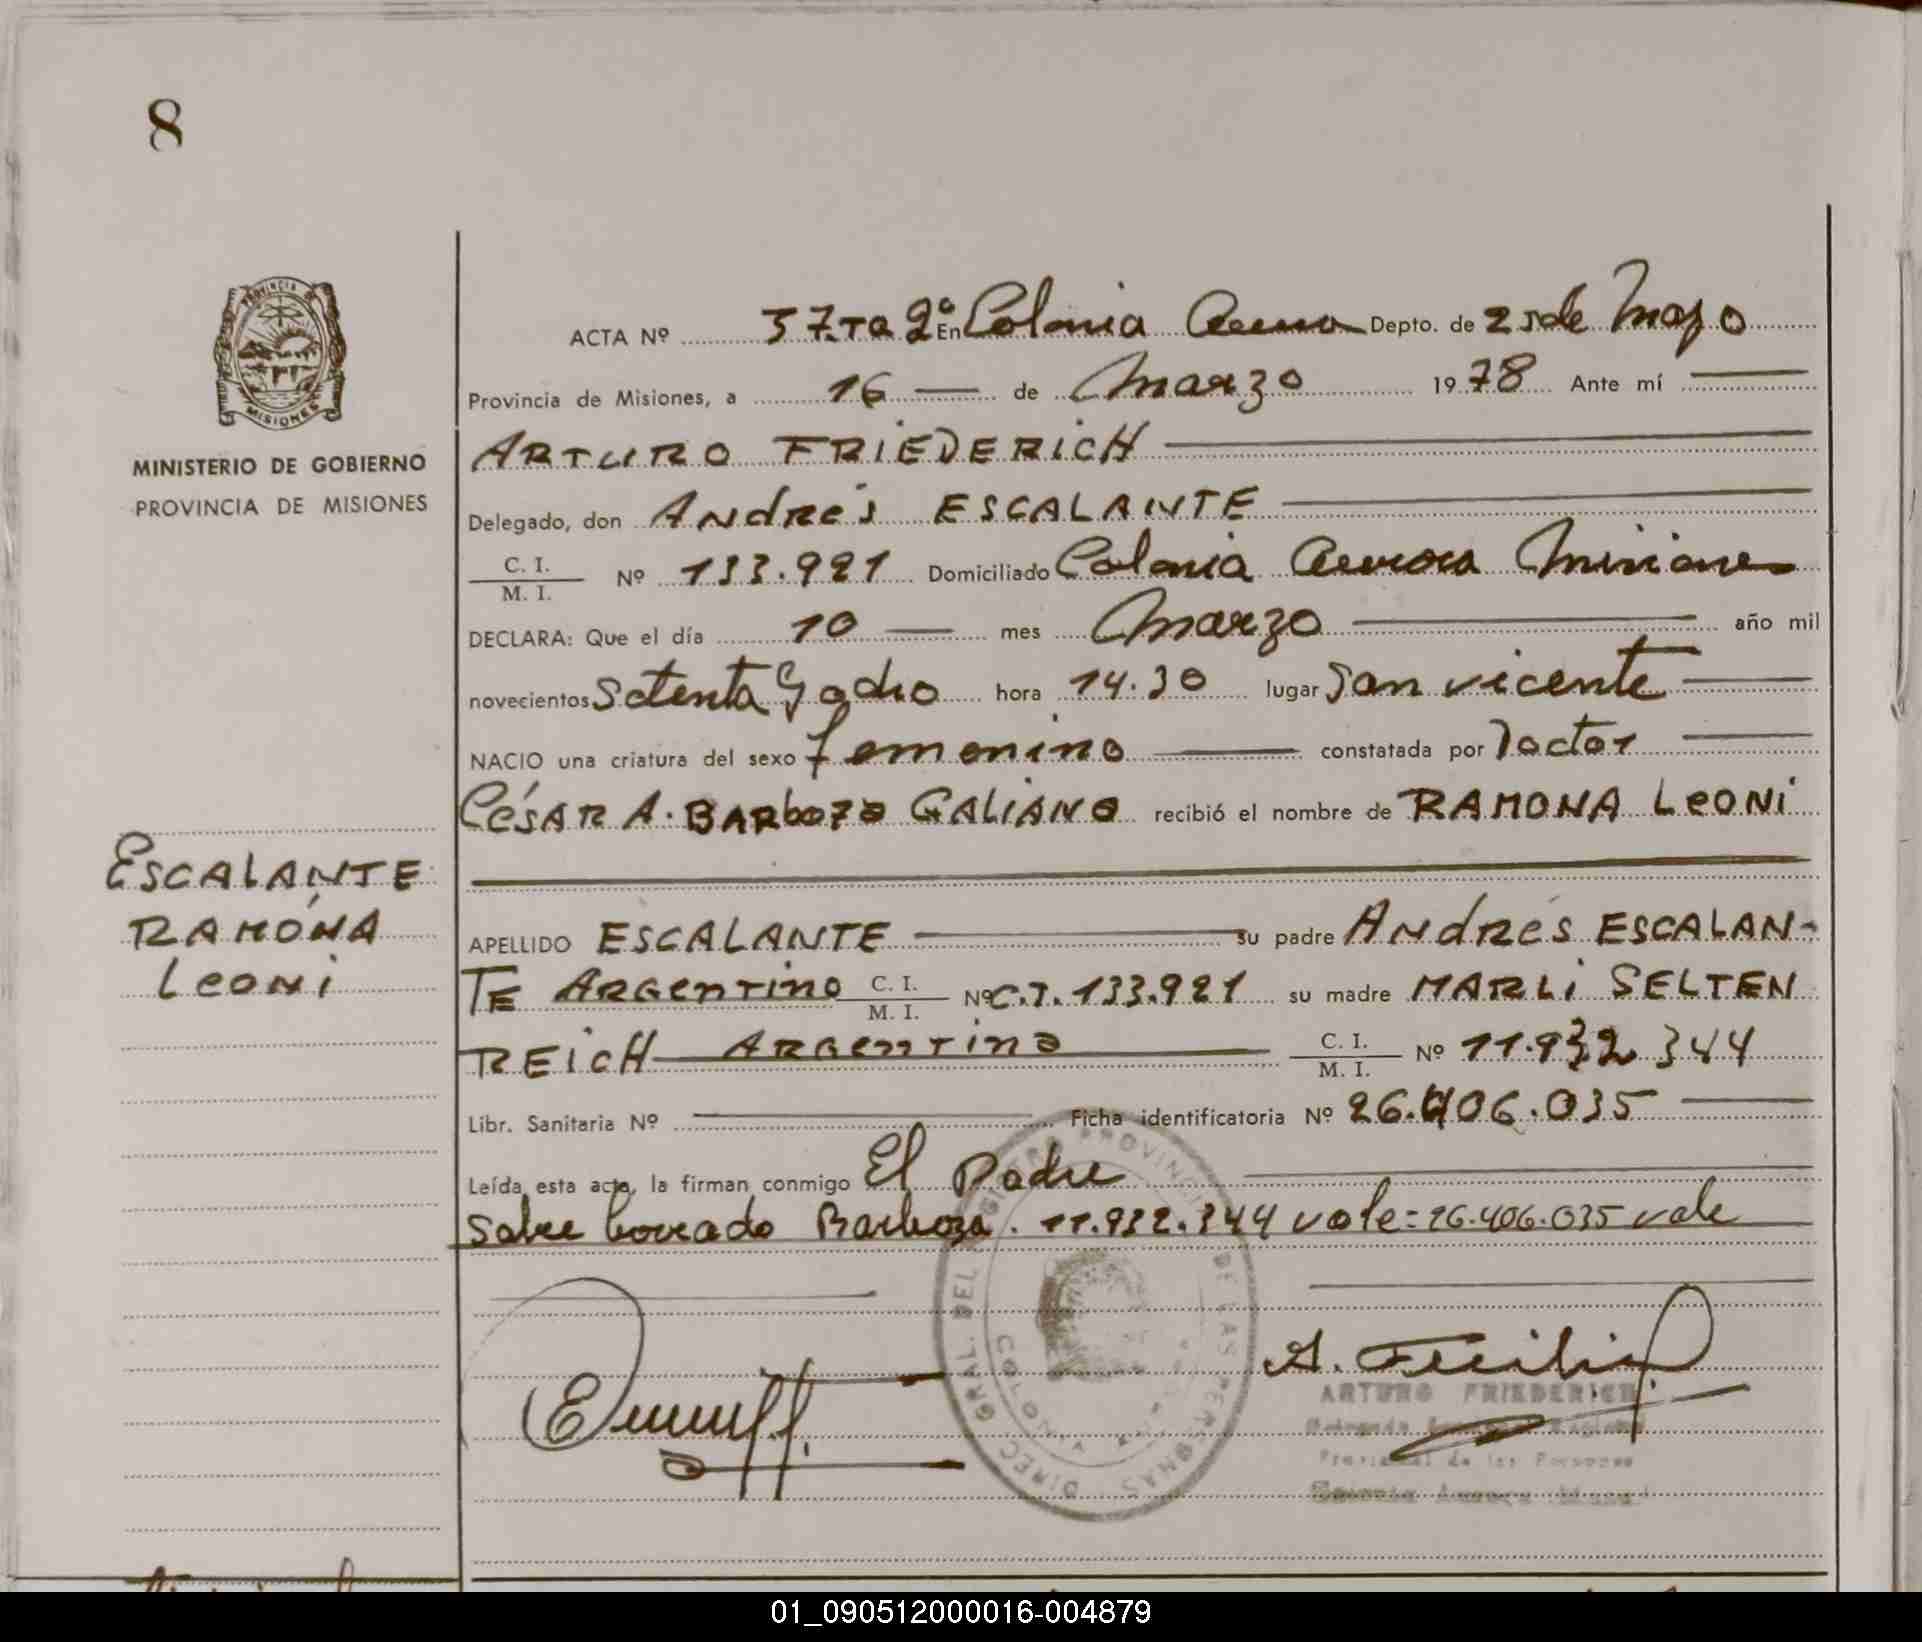 8
PROVINCIA DE
MISIONES
MINISTERIO DE GOBIERNO
PROVINCIA DE MISIONES
ESCALANTE
RAMÓNA
Leoni
ACTA Nº 37.TO 2º En Colonia Aurora Depto. de 25 de Mayo
Provincia de Misiones, a 16 — de Marzo 1978 Ante mí —
ARTURO FRIEDERICH —
Delegado, don Andrés ESCALANTE —
C. I. / M. I. Nº 133.921 Domiciliado Colonia Aurora Misiones
DECLARA: Que el día 10 — mes Marzo — año mil
novecientos Setenta y ocho hora 14.30 lugar San vicente —
NACIO una criatura del sexo femenino — constatada por Doctor —
César A. BARboza GALIANO recibió el nombre de RAMONA Leoni
APELLIDO ESCALANTE — su padre Andrés ESCALAN-
TE Argentino C. I. / M. I. Nº C.I. 133.921 su madre MARLI SELTEN
REICH — Argentina — C. I. / M. I. Nº 11.932 344
Libr. Sanitaria Nº — Ficha identificatoria Nº 26.406.035 —
Leída esta acta, la firman conmigo El Padre —
Sobre borrado Barboza. 11.932.344 vale = 26.406.035 vale
DIREC. GRAL. DEL REGISTRO PROVINCIAL DE LAS PERSONAS
COLONIA
ARTURO FRIEDERICH
Provincial de las Personas
Colonia Aurora
01_090512000016-004879